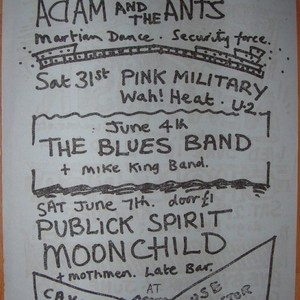 ADAM AND THE ANTS
Martian Dance. Security force.
Sat 31st PINK MILITARY
Wah! Heat. U-2
June 4th
THE BLUES BAND
+ MIKE KING Band.
SAT JUNE 7th. door £1
PUBLICK SPIRIT
MOONCHILD
+ mothmen. Late Bar.
AT